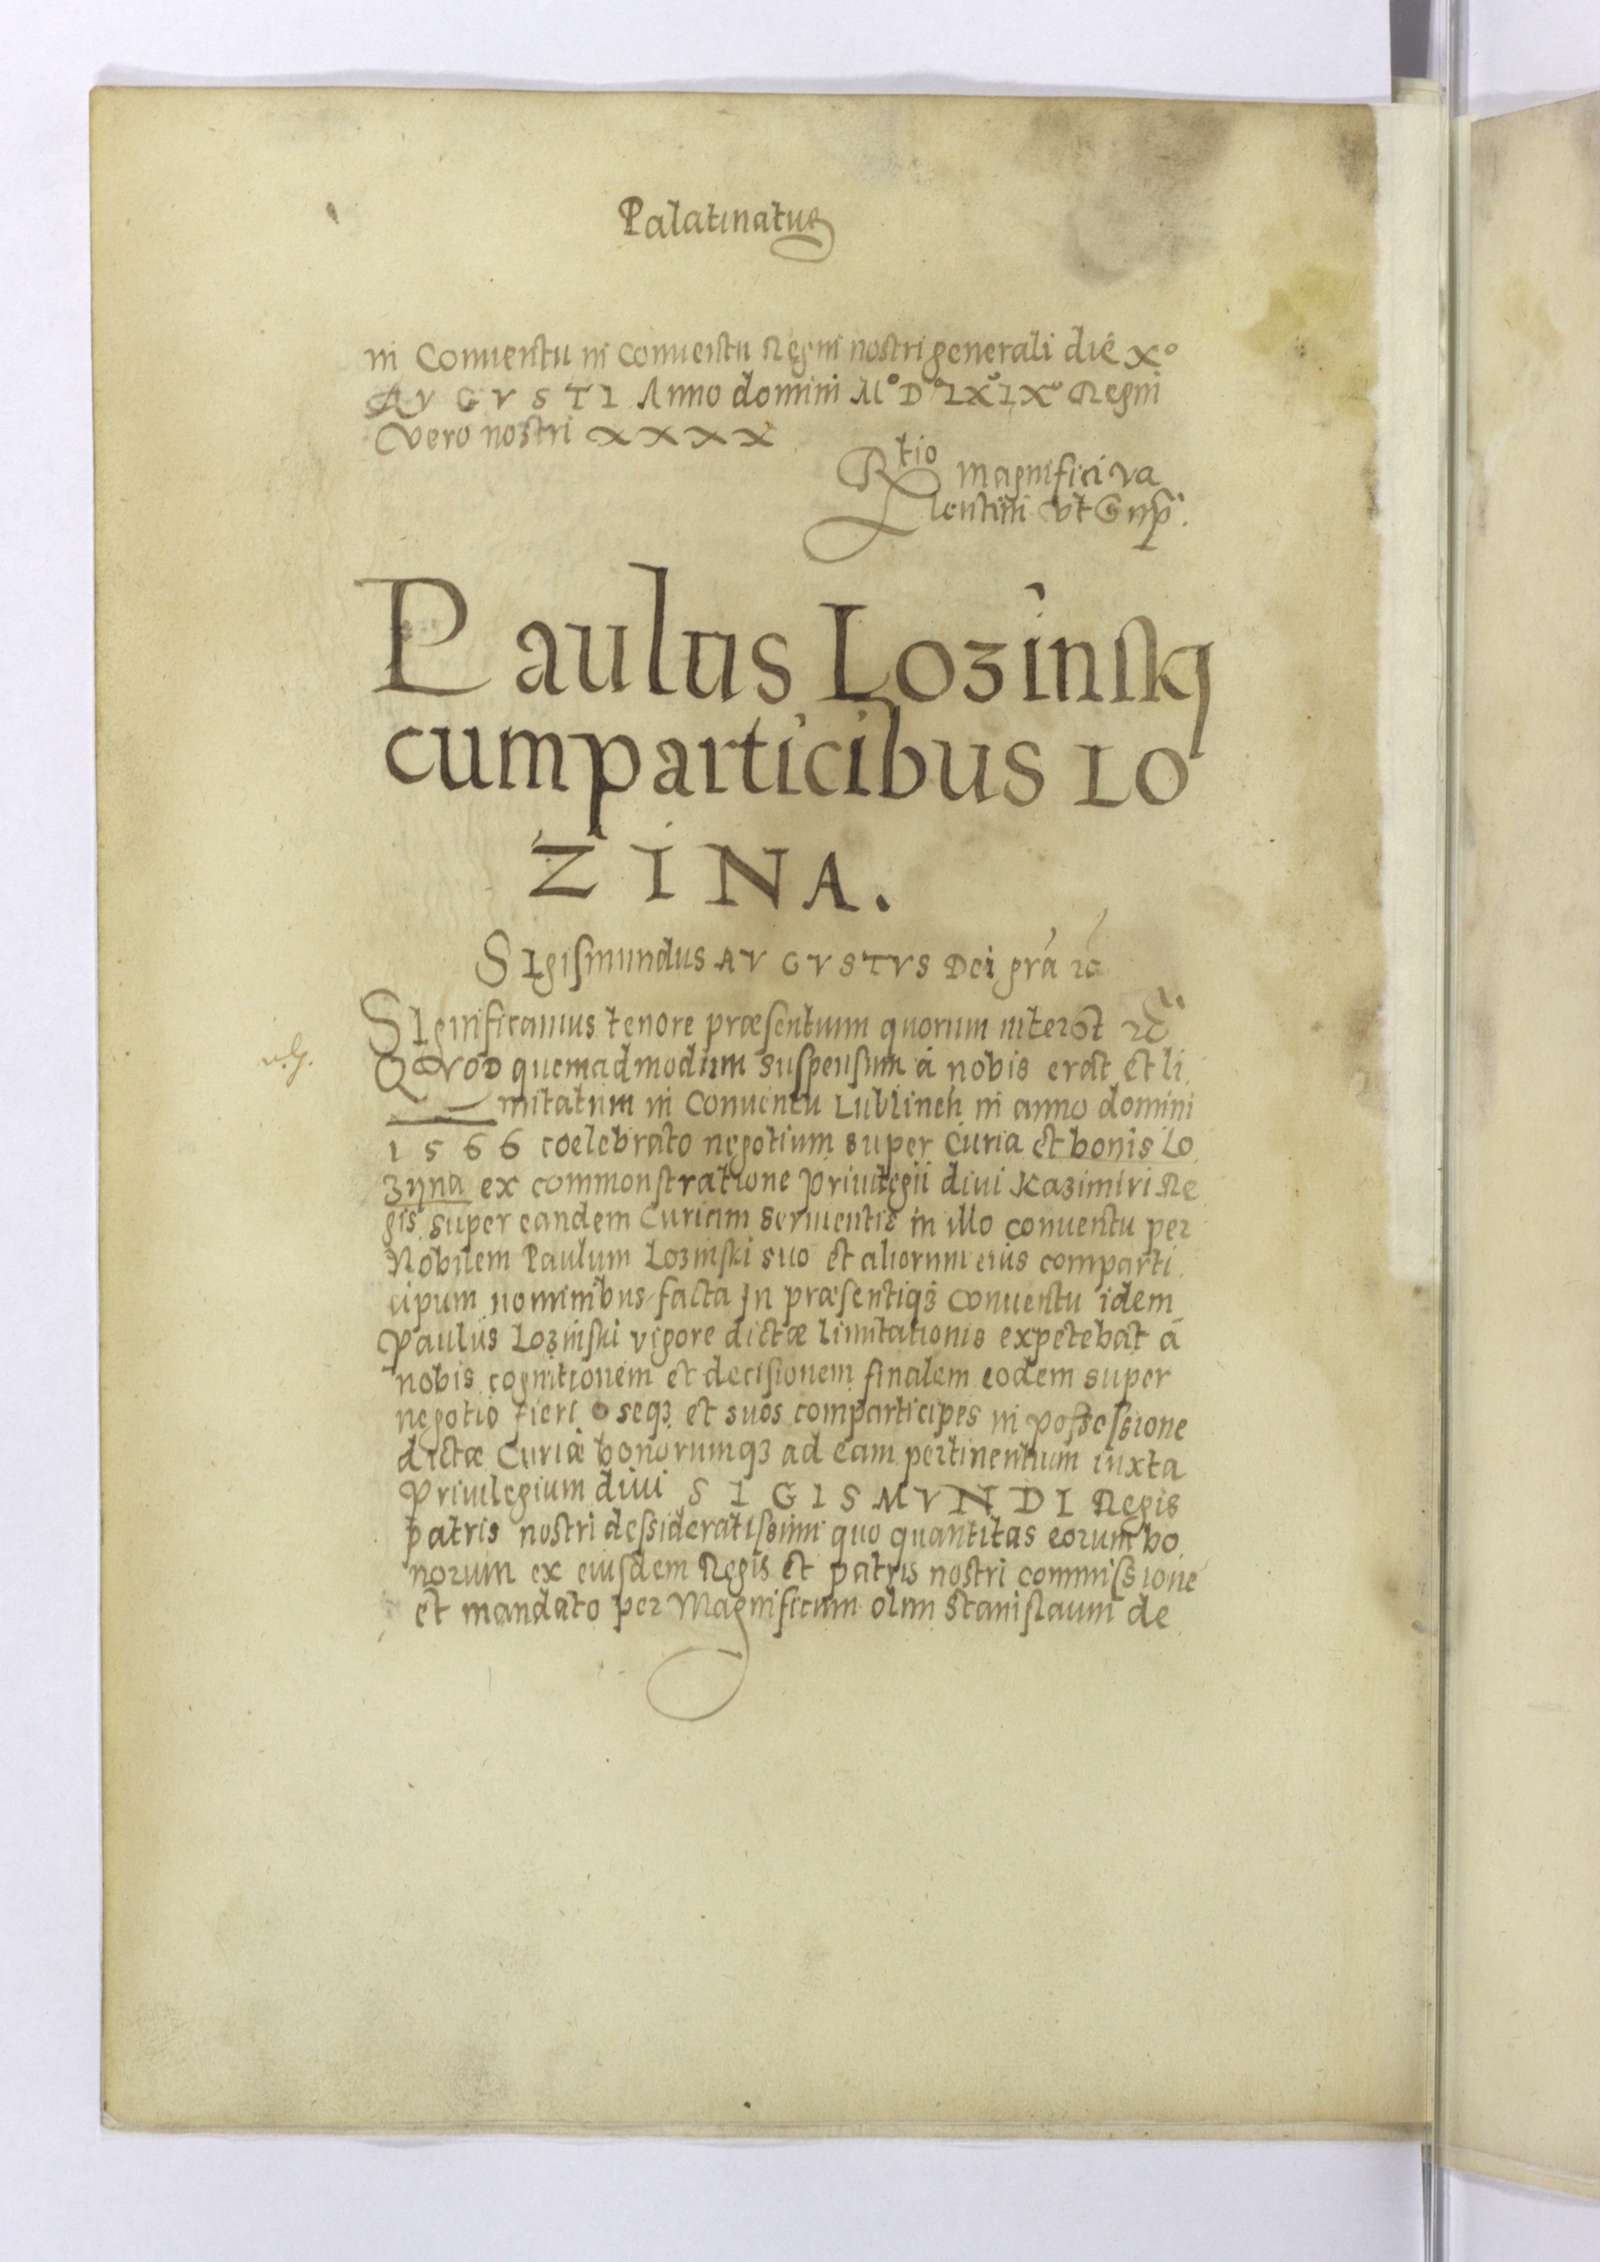 Palatinatus
in Conuentu in Conuentu Regni nostri generali die Xº
AVGVSTI Anno domini Mº Dº LXº IXº Regni
Vero nostri XXXX
Rtio magnifici Va
lentini vt Gnp̃.
Paulus Lozinskÿ
cum participibus LO
ZINA.
SIgismundus AVGVSTVS Dei grã
SIgnificamus tenore præsentium quorum interest
QVOD quemadmodum suspensum à nobis erat et li
mitatum in Conuentu Lublineñ in anno domini
1566 coelebrato negotium super Curia et bonis Lo
zyna ex commonstratione Priuilegii diui Kazimiri Re
gis super eandem Curiam seruientis in illo conuentu per
Nobilem Paulum Lozinski suo et aliorum eius comparti
cipum nominibus facta In præsentiqꝫ Conuentu idem
Paulus Lozinski vigore dictæ limitationis expetebat à
nobis cognitionem et decisionem finalem eodem super
negotio fieri seqꝫ et suos comparticipes in possessione
dictæ Curiæ bonorumqꝫ ad eam pertinentium iuxta
Priuilegium diui SIGISMVNDI Regis
patris nostri dessideratissimi quo quantitas eorum bo
norum ex eiusdem Regis et patris nostri commissione
et mandato per Magnificum olim Stanislaum de